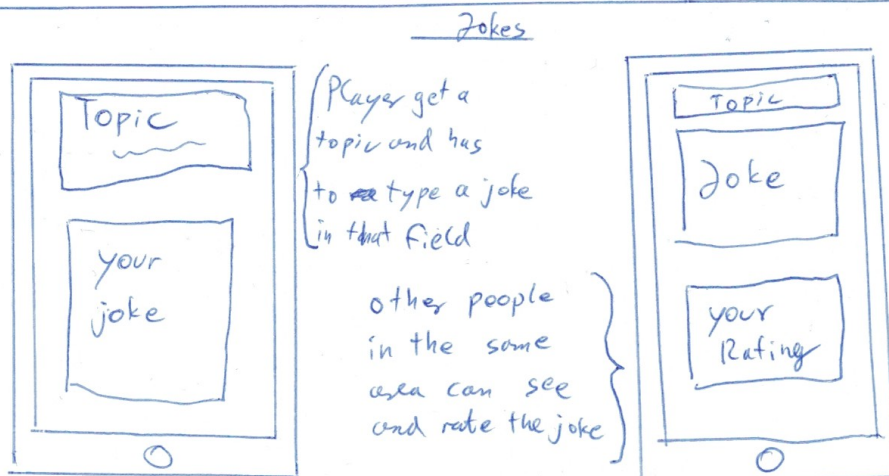 Jokes
Topic
your
joke
Player get a
topic and has
to type a joke
in that field
other people
in the same
area can see
and rate the joke
Topic
Joke
your
Rating